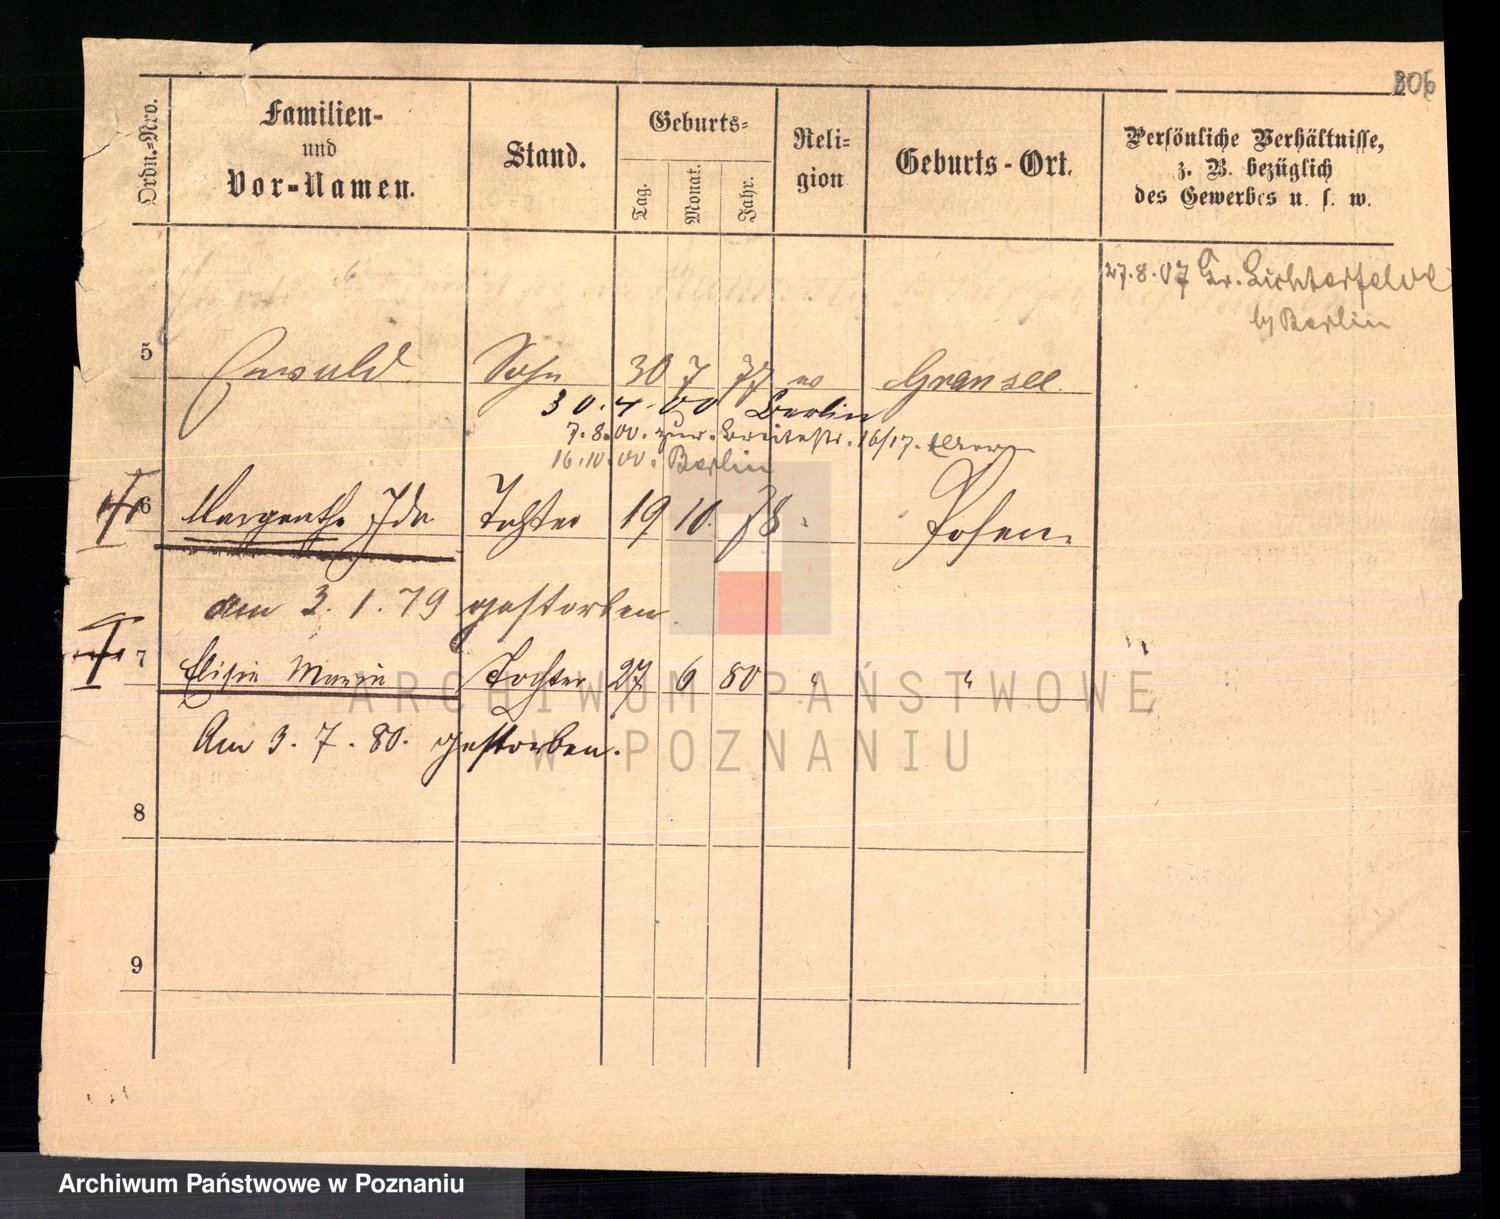 306
Ordn.-Nro.
Familien-
und
Vor-Namen.
Stand.
Geburts-
Tag.
Monat.
Jahr.
Reli-
gion
Geburts-Ort.
Persönliche Verhältnisse,
z. B. bezüglich
des Gewerbes u. s. w.
27.8.07 Gr. Lichterfelde
b/ Berlin
5 Ewald Sohn 30 7 77 ev Gransee
30.4.00 Berlin
7.8.00. zur. Breitestr. 16/17.
16.10.00. Berlin
6 Margarethe Ida Tochter 19 10. 78 " Posen.
am 3.1.79 gestorben
7 Marie Tochter 27 6 80 " "
Am 3.7.80. gestorben.
8
9
ARCHIWUM PAŃSTWOWE
W POZNANIU
Archiwum Państwowe w Poznaniu